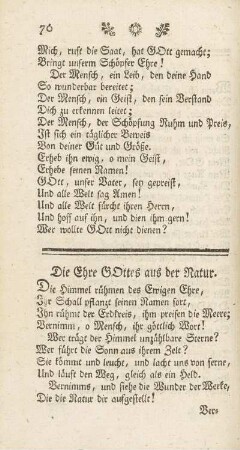 76
Mich, ruft die Saat, hat GOtt gemacht;
Bringt unserm Schöpfer Ehre!
Der Mensch, ein Leib, den deine Hand
So wunderbar bereitet;
Der Mensch, ein Geist, den sein Verstand
Dich zu erkennen leitet;
Der Mensch, der Schöpfung Ruhm und Preis,
Ist sich ein täglicher Beweis
Von deiner Güt und Größe.
Erheb ihn ewig, o mein Geist,
Erhebe seinen Namen!
GOtt, unser Vater, sey gepreist,
Und alle Welt sag Amen!
Und alle Welt fürcht ihren Herrn,
Und hoff auf ihn, und dien ihm gern!
Wer wollte GOtt nicht dienen?
Die Ehre GOttes aus der Natur.
Die Himmel rühmen des Ewigen Ehre,
Ihr Schall pflanzt seinen Namen fort,
Ihn rühmt der Erdkreis, ihm preisen die Meere;
Vernimm, o Mensch, ihr göttlich Wort!
Wer trägt der Himmel unzählbare Sterne?
Wer führt die Sonn aus ihrem Zelt?
Sie kömmt und leucht, und lacht uns von ferne,
Und läuft den Weg, gleich als ein Held.
Vernimms, und siehe die Wunder der Werke,
Die die Natur dir aufgestellt!
Ver-